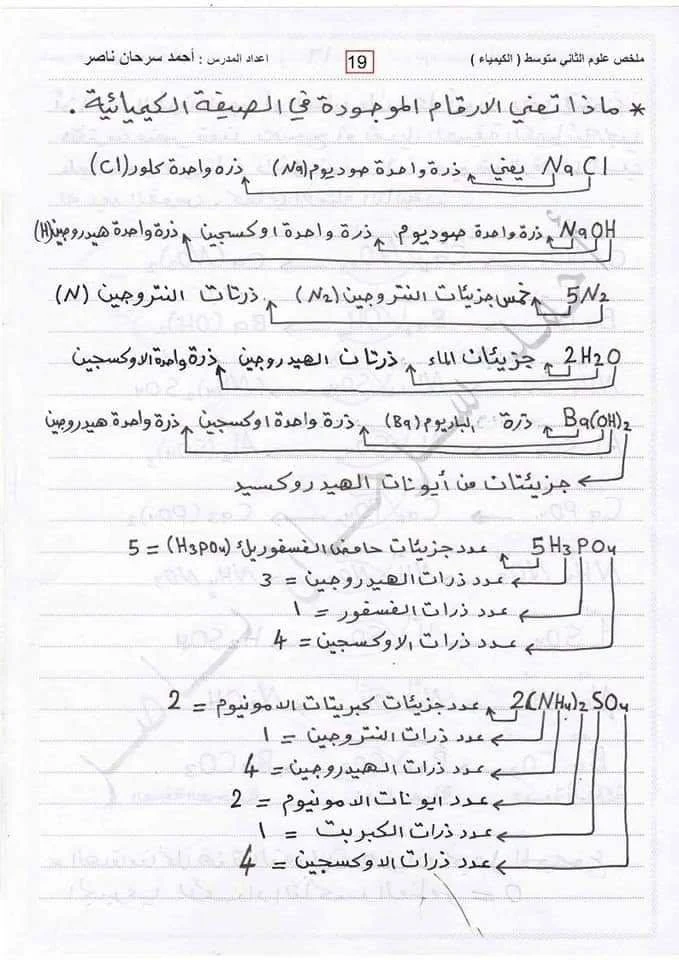 ملخص علوم الثاني متوسط ( الكيمياء ) 19 اعداد المدرس : أحمد سرحان ناصر
* ماذا تعني الارقام الموجودة في الصيغة الكيميائية .
NaCl يعني ذرة واحدة صوديوم (Na) ذرة واحدة كلور (Cl)
NaOH ذرة واحدة صوديوم ذرة واحدة اوكسجين ذرة واحدة هيدروجين (H)
5N2 خمس جزيئات النتروجين (N2) ذرتات النتروجين (N)
2H2O جزيئات الماء ذرتان الهيدروجين ذرة واحدة الاوكسجين
Ba(OH)2 ذرة الباديوم (Ba) ذرة واحدة اوكسجين ذرة واحدة هيدروجين
جزيئتان من أيونات الهيدروكسيد
5H3PO4 عدد جزيئات حامض الفسفوريك (H3PO4) = 5
عدد ذرات الهيدروجين = 3
عدد ذرات الفسفور = 1
عدد ذرات الاوكسجين = 4
2(NH4)2SO4 عدد جزيئات كبريتات الامونيوم = 2
عدد ذرات النتروجين = 1
عدد ذرات الهيدروجين = 4
عدد ايونات الامونيوم = 2
عدد ذرات الكبريت = 1
عدد ذرات الاوكسجين = 4
أحمد سرحان ناصر